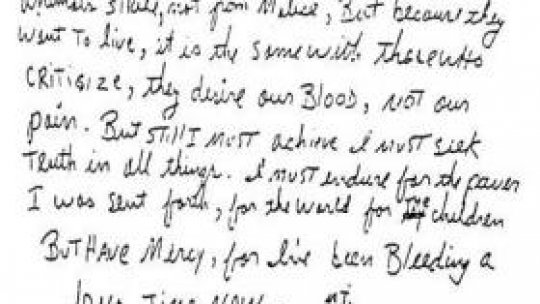 strike, not from Malice, But because they
want To live, it is the same with those who
CRITISIZE, they desire our BlooD, NOT our
pain. But STill I MUST achieve I MUST seek
TRUTH in all things. I MUST endure for the power
I was sent forth, for the world for The children
BUT HAVE MeRcy, for I've been Bleeding a
long Time NOW.